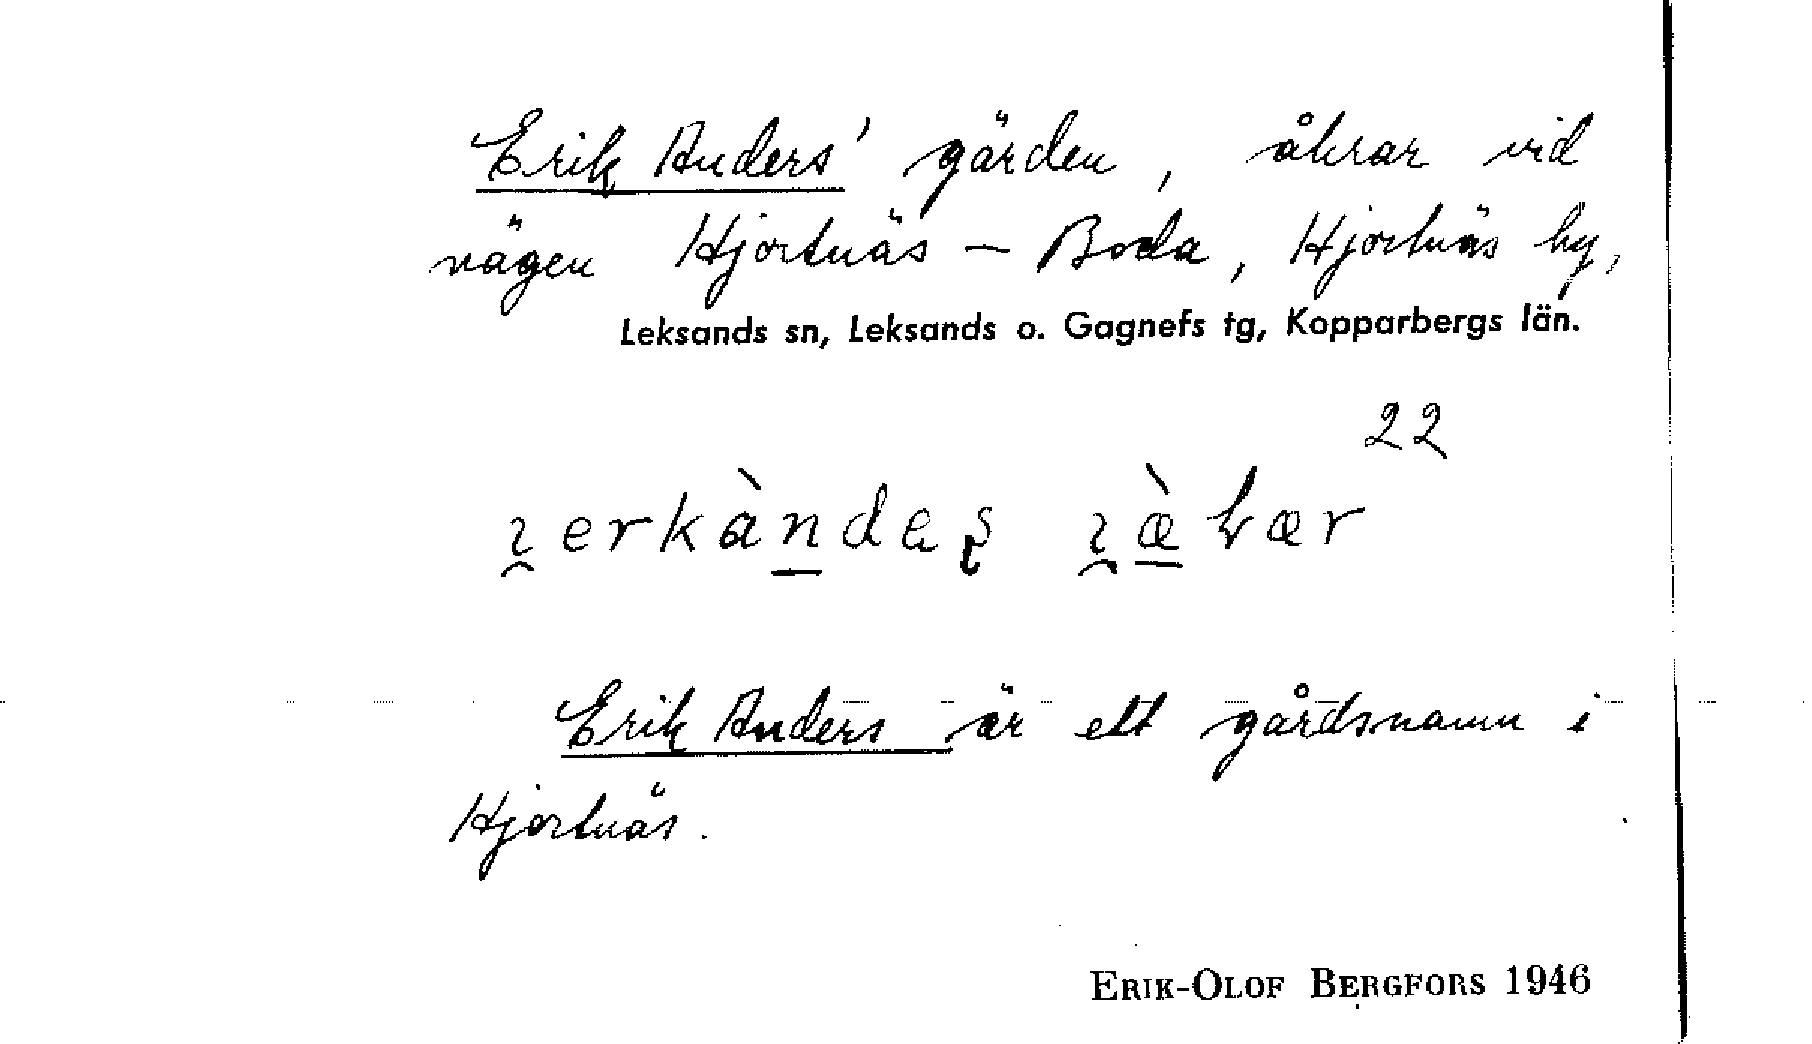 Erik Anders' gärden, åkrar vid
vägen Hjortnäs - Boda, Hjortnäs by,
Leksands sn, Leksands o. Gagnefs tg, Kopparbergs län.
22
Erik Anders är ett gårdsnamn i
Hjortnäs.
ERIK-OLOF BERGFORS 1946